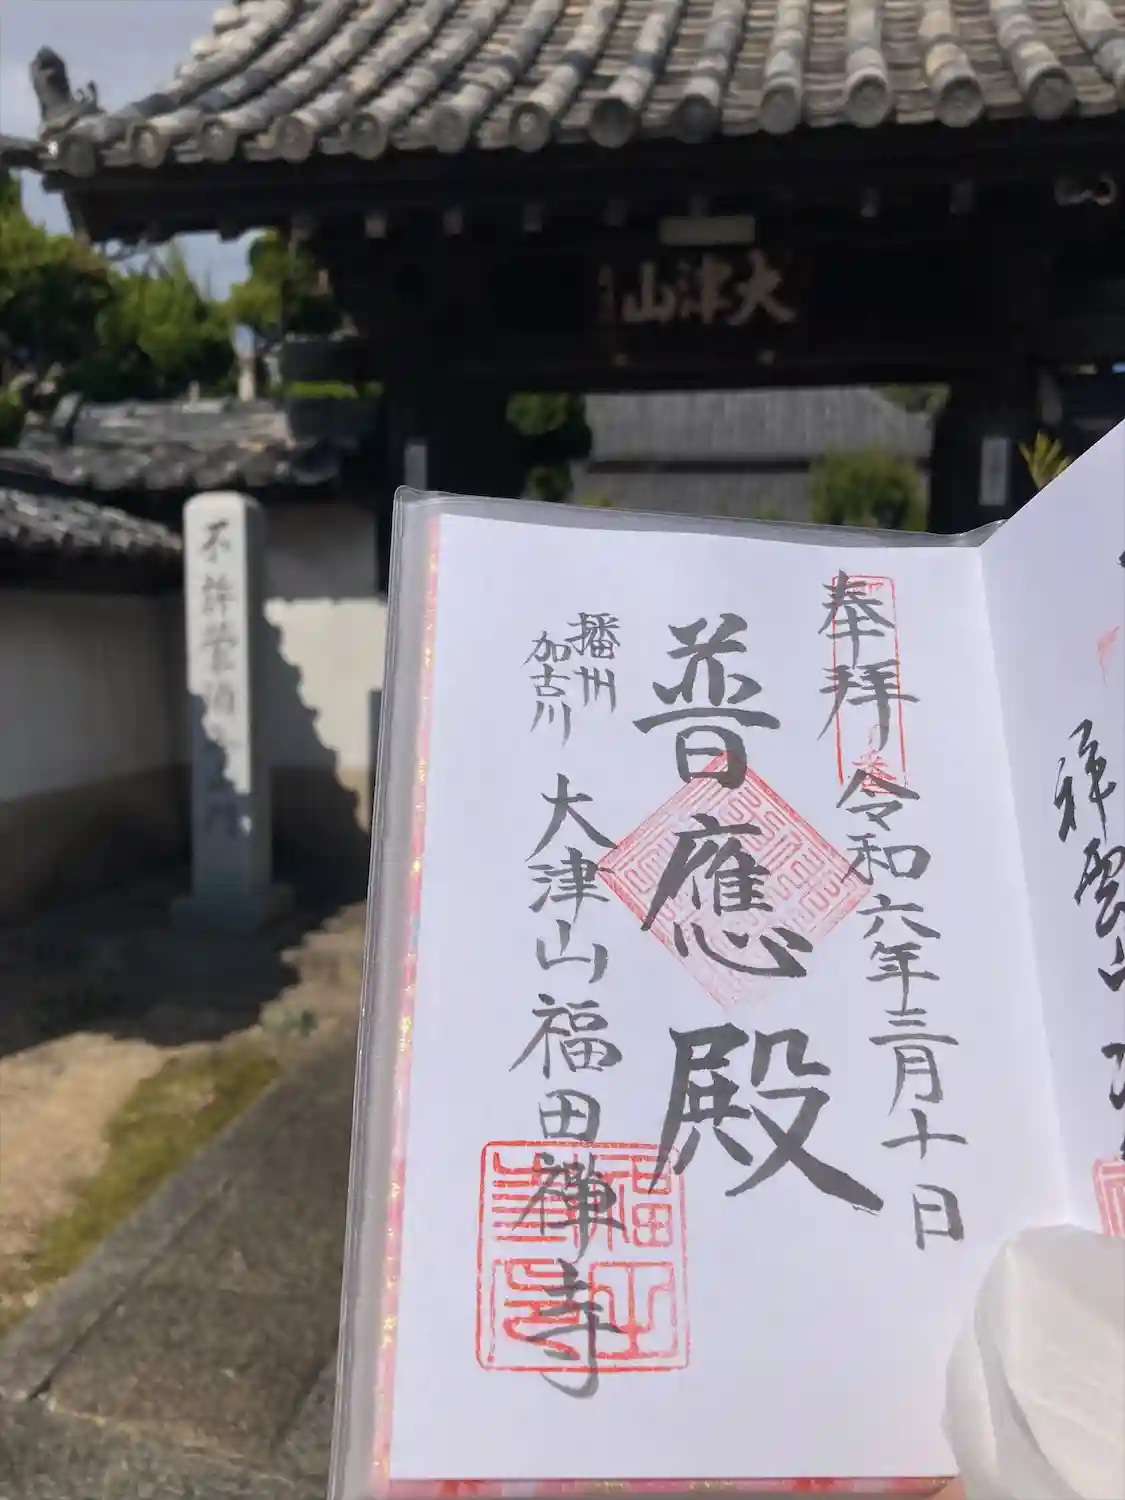 大津山
不許葷酒
奉拝
令和六年三月十日
普應殿
播州
加古川
大津山福田禅寺
祥雲山